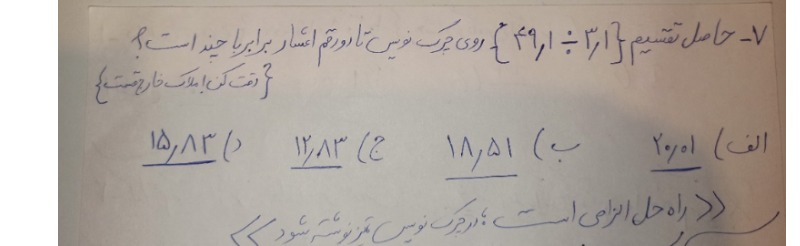 ۷- حاصل تقسیم {۴۹٫۱ ÷ ۳٫۱} روی چرک نویس تا دو رقم اعشار برابر با چند است؟
{دقت کن املاک خارج قسمت}
الف) ۲۰٫۰۱ ب) ۱۸٫۵۱ ج) ۱۲٫۸۳ د) ۱۵٫۸۳
<<راه حل الزامی است در چرک نویس تمیز نوشته شود>>